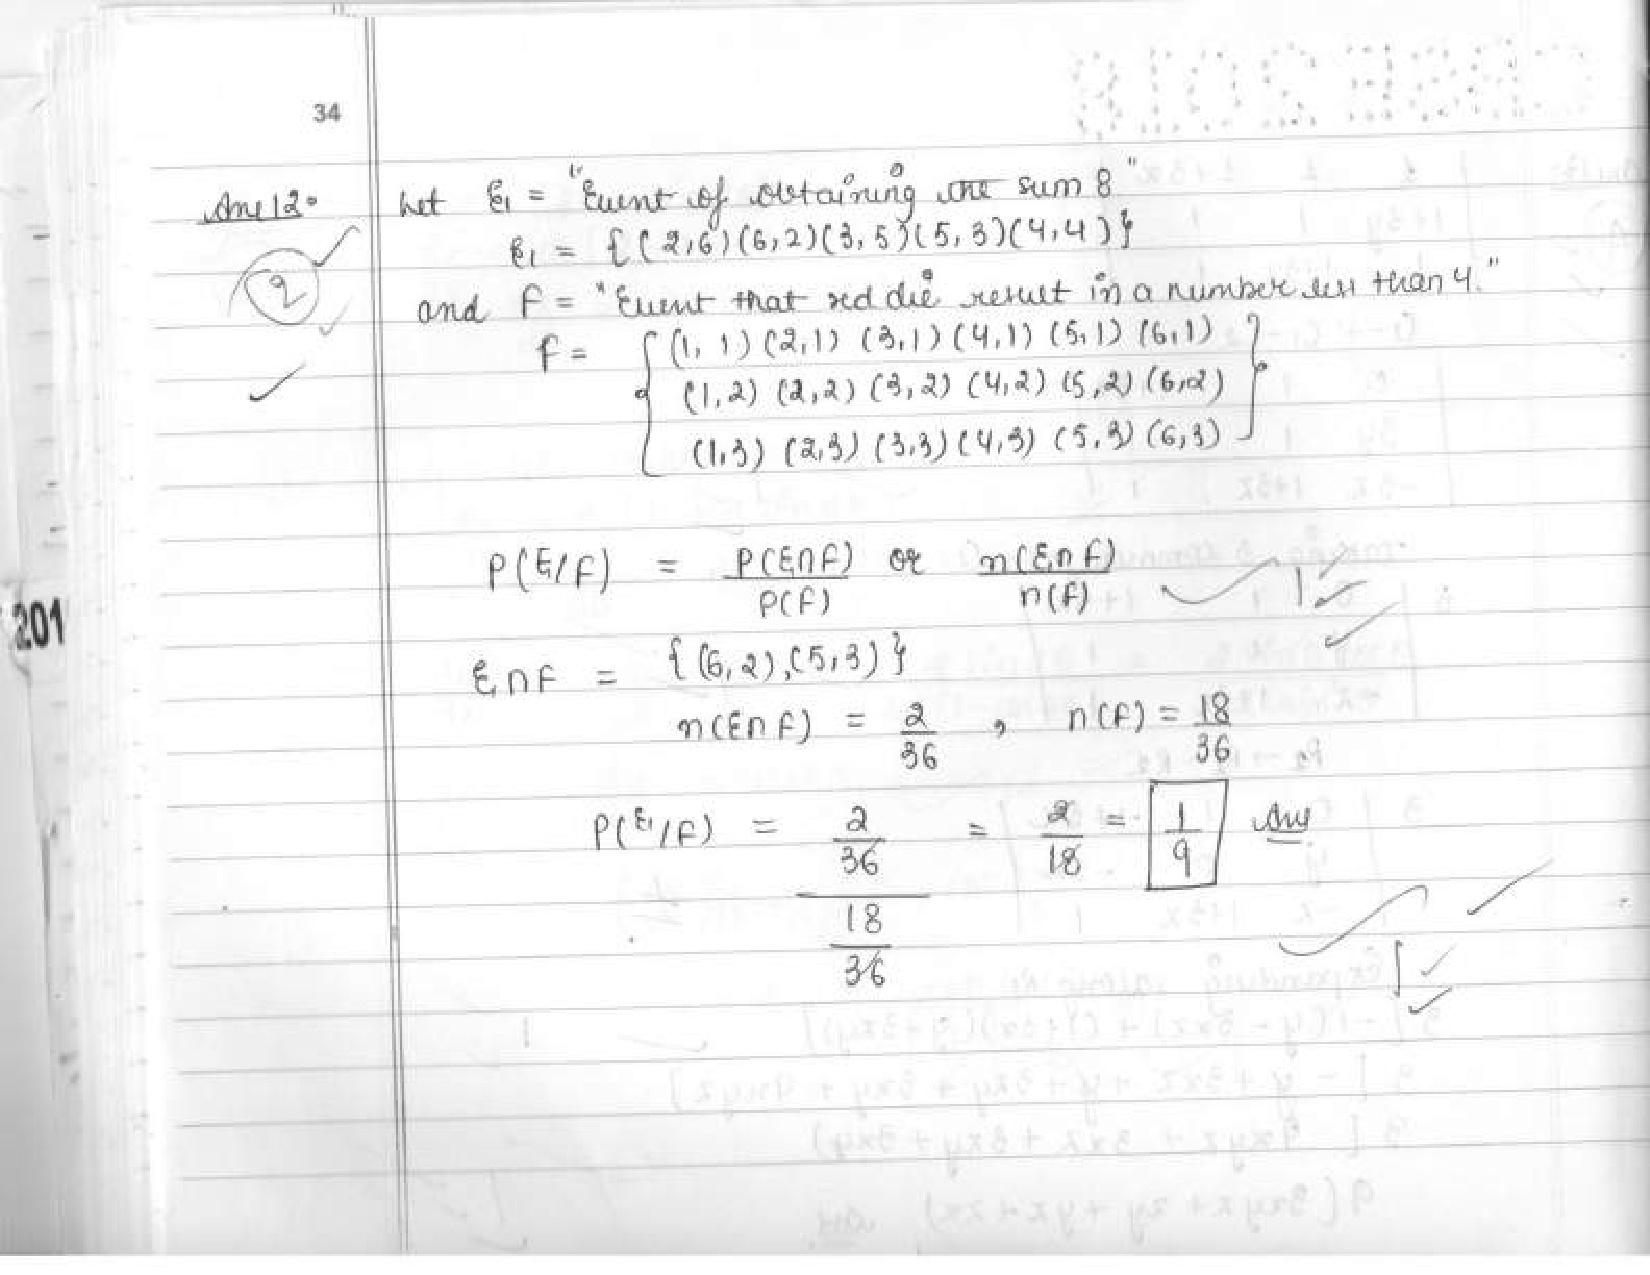 CBSE 2018
34
Ans 12. Let E₁ = "Event of obtaining the sum 8"
E₁ = {(2,6)(6,2)(3,5)(5,3)(4,4)}
2
and F = "Event that red die result in a number less than 4."
F = { (1,1) (2,1) (3,1) (4,1) (5,1) (6,1)
(1,2) (2,2) (3,2) (4,2) (5,2) (6,2)
(1,3) (2,3) (3,3) (4,3) (5,3) (6,3) }
P(E₁/F) = P(E∩F)/P(F) or n(E₁∩F)/n(F) 1
E₁∩F = {(6,2),(5,3)}
n(E∩F) = 2/36 , n(F) = 18/36
201
P(E₁/F) = 2/36 / 18/36 = 2/18 = 1/9 Ans
1